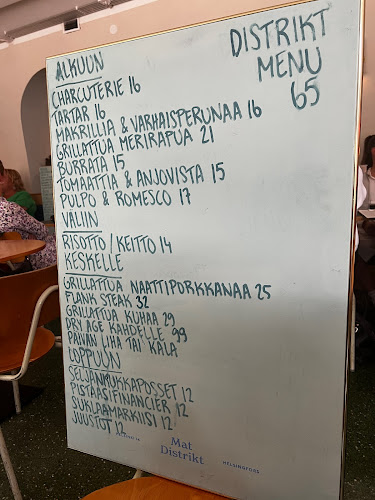 DISTRIKT
MENU
65
ALKUUN
CHARCUTERIE 16
TARTAR 16
MAKRILLIA & VARHAISPERUNAA 16
GRILLATTUA MERIRAPUA 21
BURRATA 15
TOMAATTIA & ANJOVISTA 15
PULPO & ROMESCO 17
VÄLIIN
RISOTTO / KEITTO 14
KESKELLE
GRILLATTUA NAATTIPORKKANAA 25
FLANK STEAK 32
GRILLATTUA KUHAA 29
DRY AGE KAHDELLE 99
PÄIVÄN LIHA TAI KALA
LOPPUUN
SELJANKUKKAPOSSET 12
PISTAASIFINANCIER 12
SUKLAAMARKIISI 12
JUUSTOT 12
Mat
Distrikt
HELSINGFORS